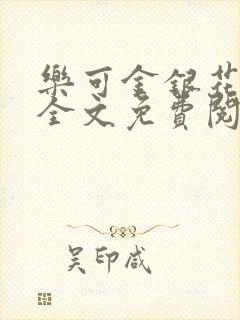 樂可金銀花
全文免費閱
吴印咸